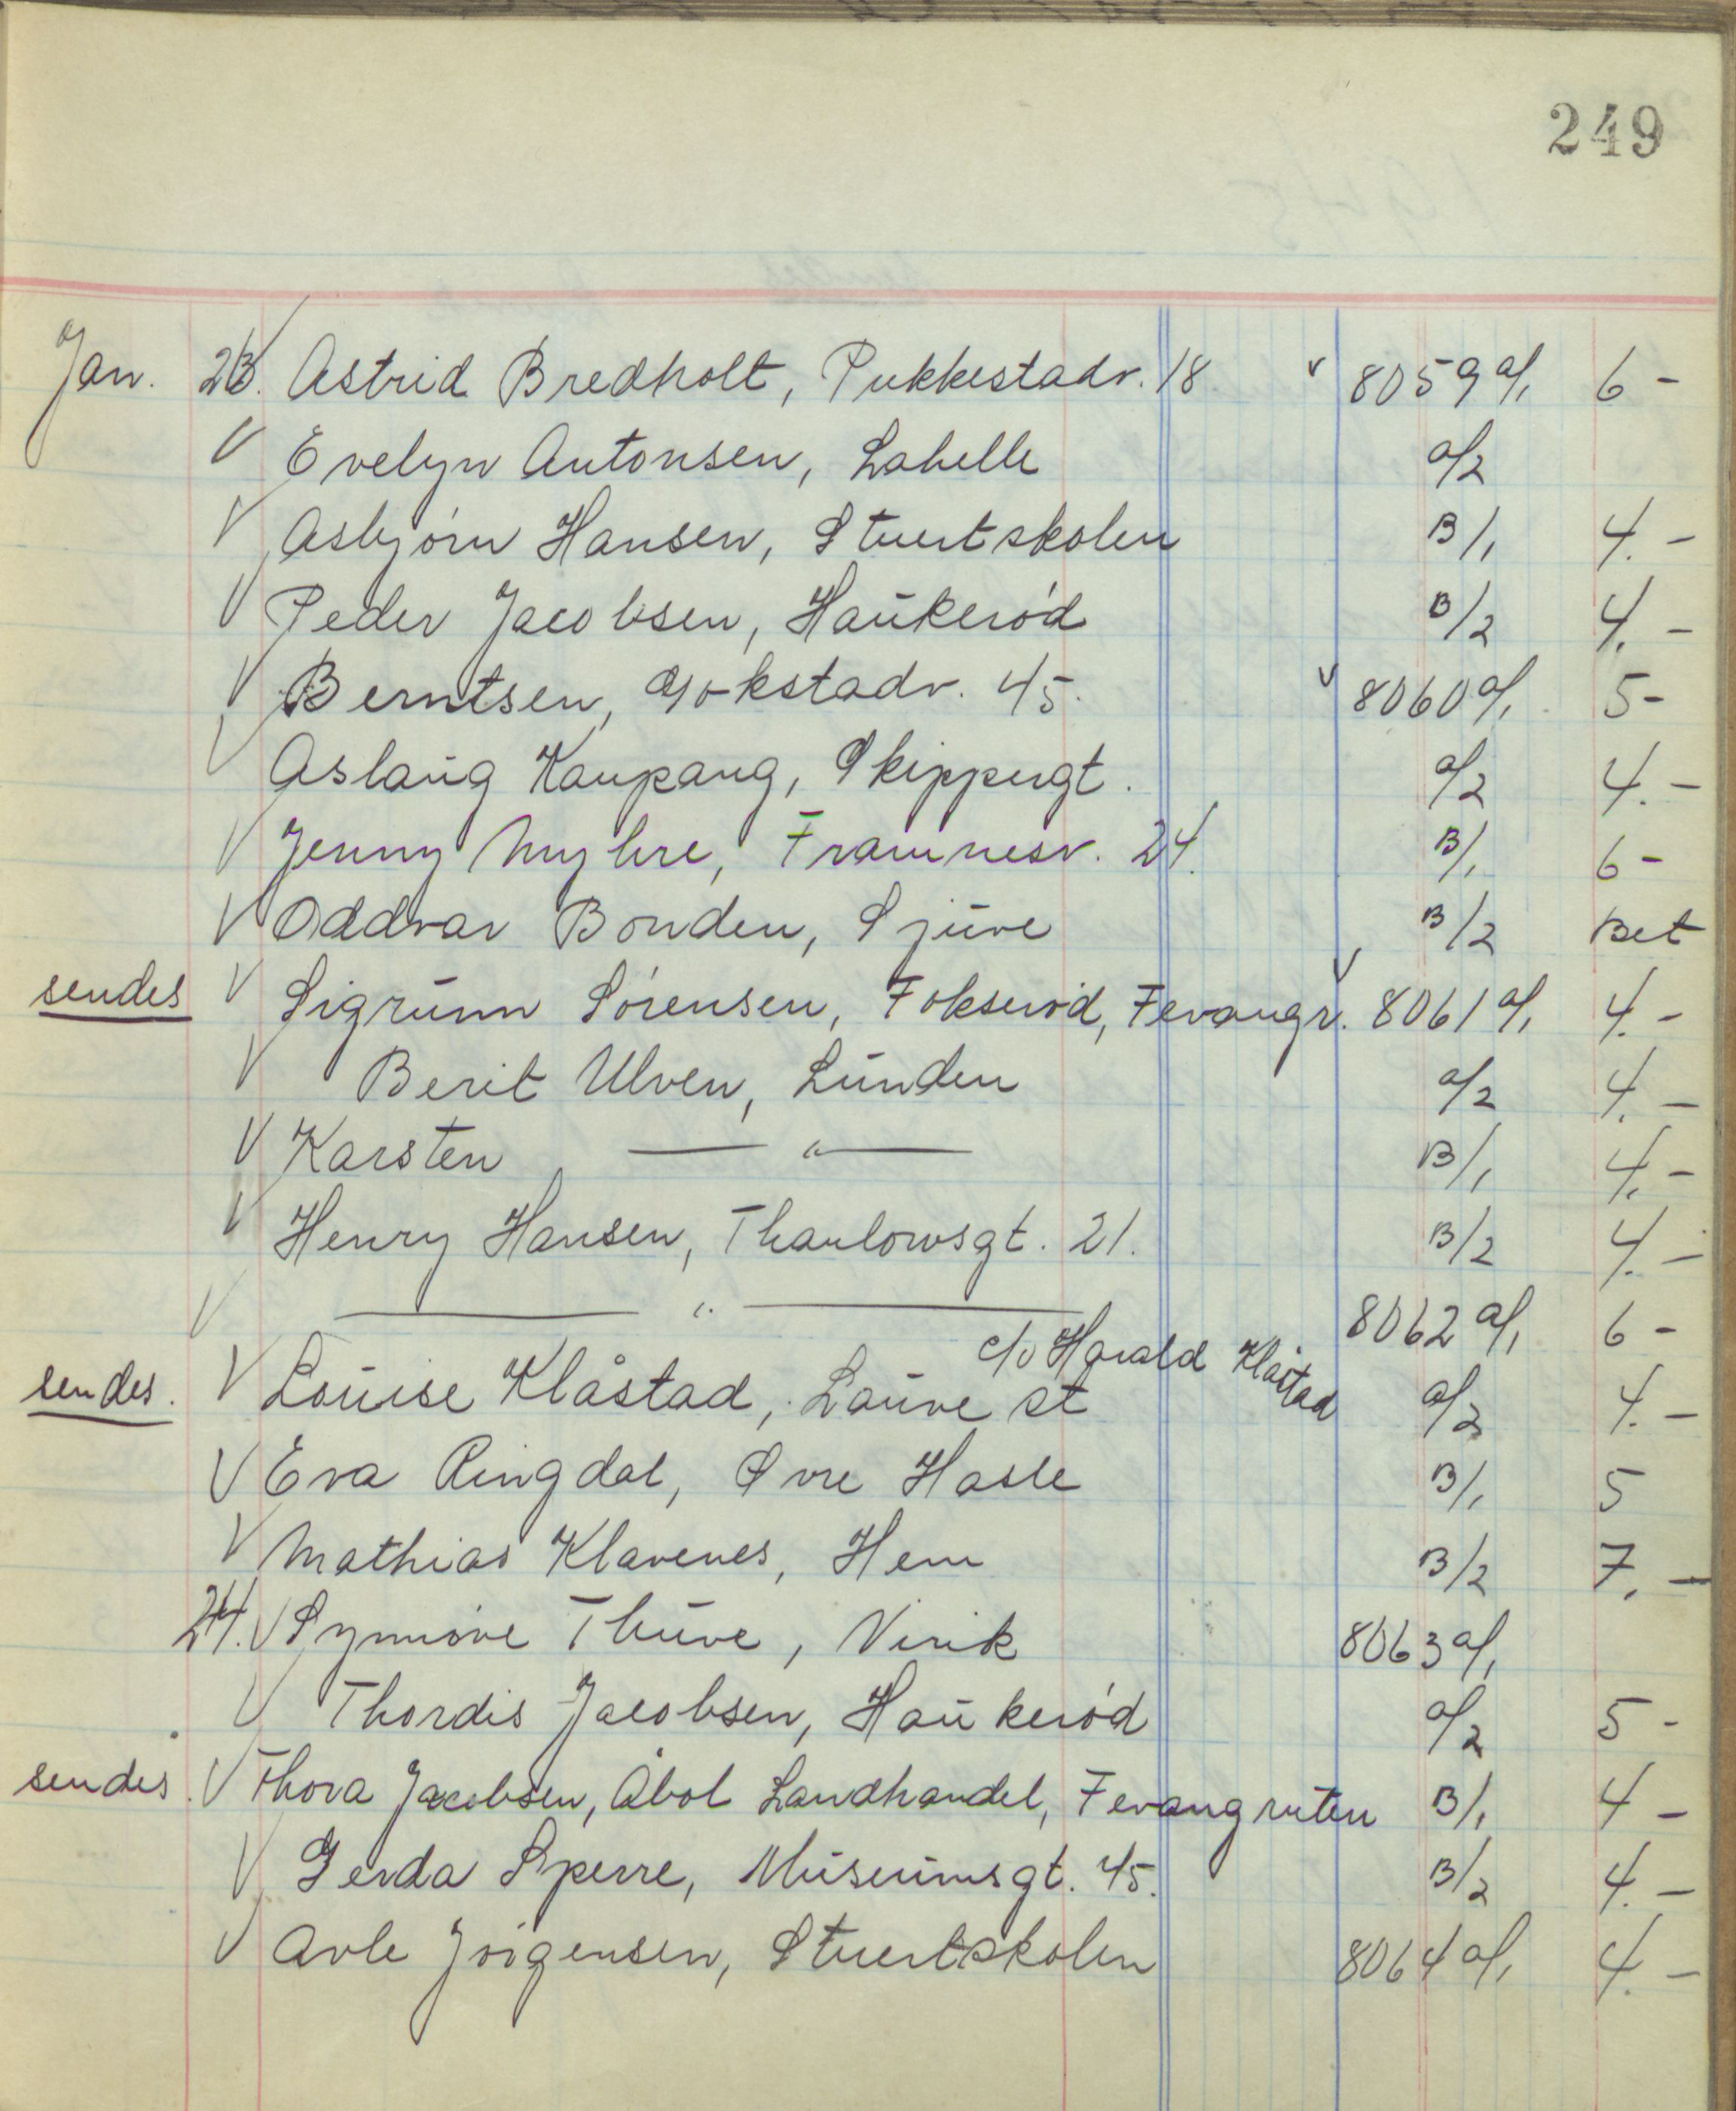 249
Jan. 23. Astrid Bredholt, Pukkestadv. 18 v 8059 a/1 6 -
V Evelyn Antonsen, Labelle a/2
V Asbjørn Hansen, Stuertskolen B/1 4. -
V Peder Jacobsen, Haukerød B/2 4. -
V Berntsen, Gokstadv. 45. v 8060 a/1 5 -
V Aslaug Kaupang, Skippergt. a/2 4. -
V Jenny Myhre, Framnesv. 24. B/1 6 -
V Oddvar Bonden, Sjuve B/2 Bet
sendes V Sigrunn Sørensen, Fokserød, Fevangr. v 8061 a/1 4. -
V Berit Ulven, Lunden a/2 4. -
V Karsten — " — B/1 4. -
V Henry Hansen, Thaulowsgt. 21. B/2 4. -
V — " — 8062 a/1 6 -
c/o Harald Klåstad
sendes. V Louise Klåstad, Lauve st a/2 4. -
V Eva Ringdal, Øvre Hasle B/1 5
V Mathias Klavenes, Hem B/2 7. -
24. V Synnøve Thuve, Virik 8063 a/1
V Thordis Jacobsen, Haukerød a/2 5 -
sendes. V Thora Jacobsen, Åbol Landhandel, Fevangruten B/1 4 -
V Gerda Sperre, Museumsgt. 45. B/2 4. -
V Arle Jørgensen, Stuertskolen 8064 a/1 4. -